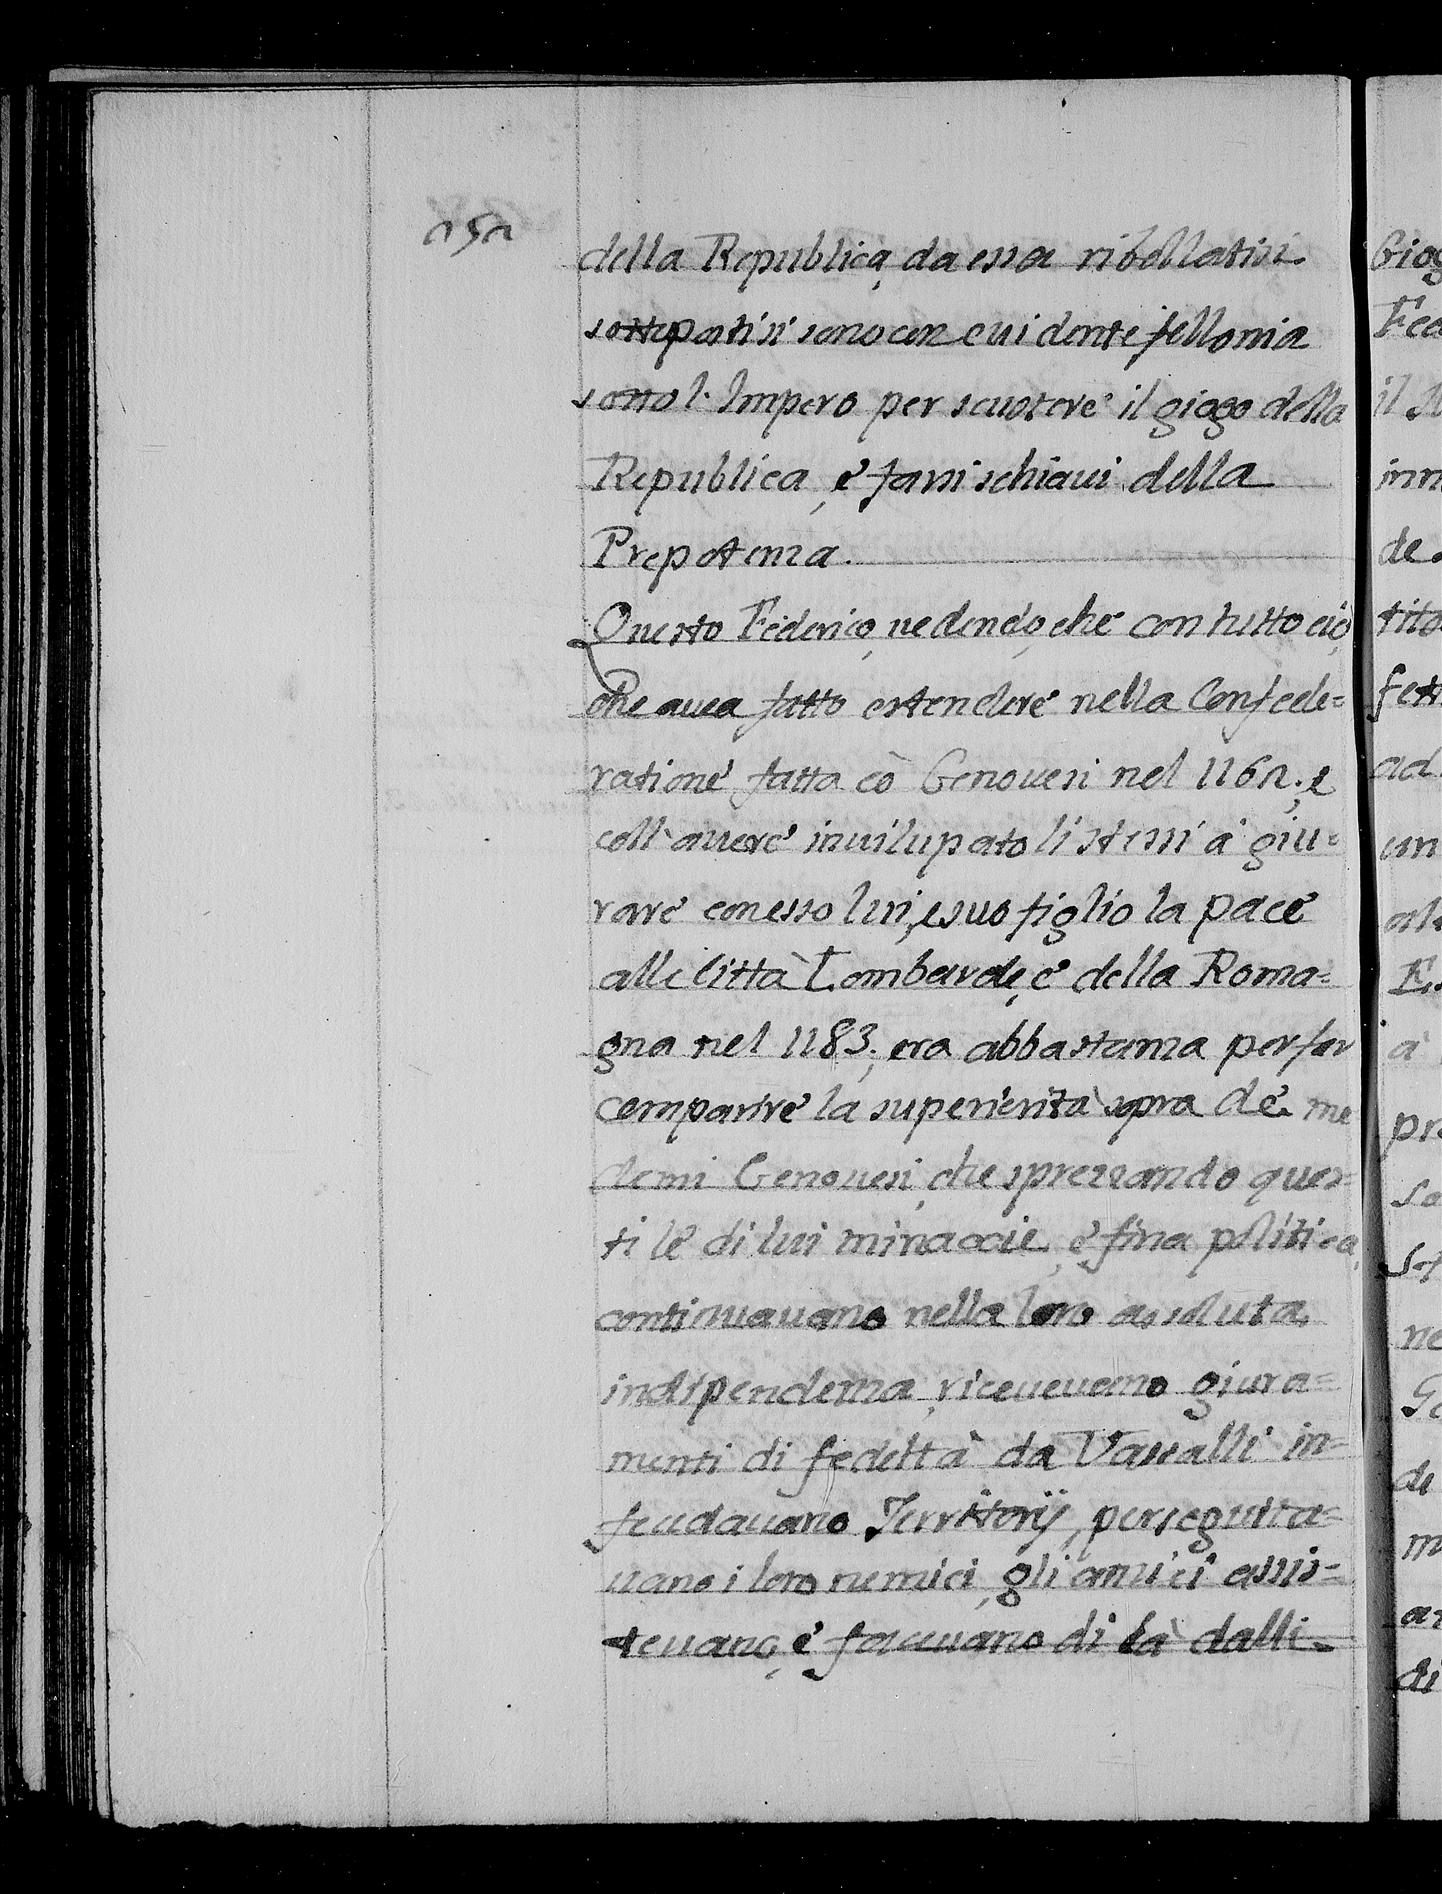 252
della Republica, da essa ribellatisi
sottopostisi sono con euidente fellonia
sotto l'Impero per scuotere il giogo della
Republica, è farsi schiaui della
Prepotenza.
Questo Federico, uedendo, che con tutto ciò,
che auea fatto estendere nella Confede=
ratione fatta cò Genouesi nel 1162; e
coll'auere inuilupato li stessi à giu=
rare con esso lui, e suo figlio la pace
alle Città Lombarde, e della Roma=
gna nel 1183; era abbastanza per far
comparire la superiorità sopra de me
demi Genouesi, che sprezzando ques=
ti le di lui minaccie, è fina politica,
continuauano nella loro assoluta
indipendenza, riceueuano giura=
menti di fedeltà da Vassalli in=
feudauano Territorij, perseguita=
uano i loro nemici, gli amici assis=
teuano, è faceuano di là dalli
Giog
Fed
il
inn
de
tito
fett
ad
un
E.
à
pr
ne
de
m
di